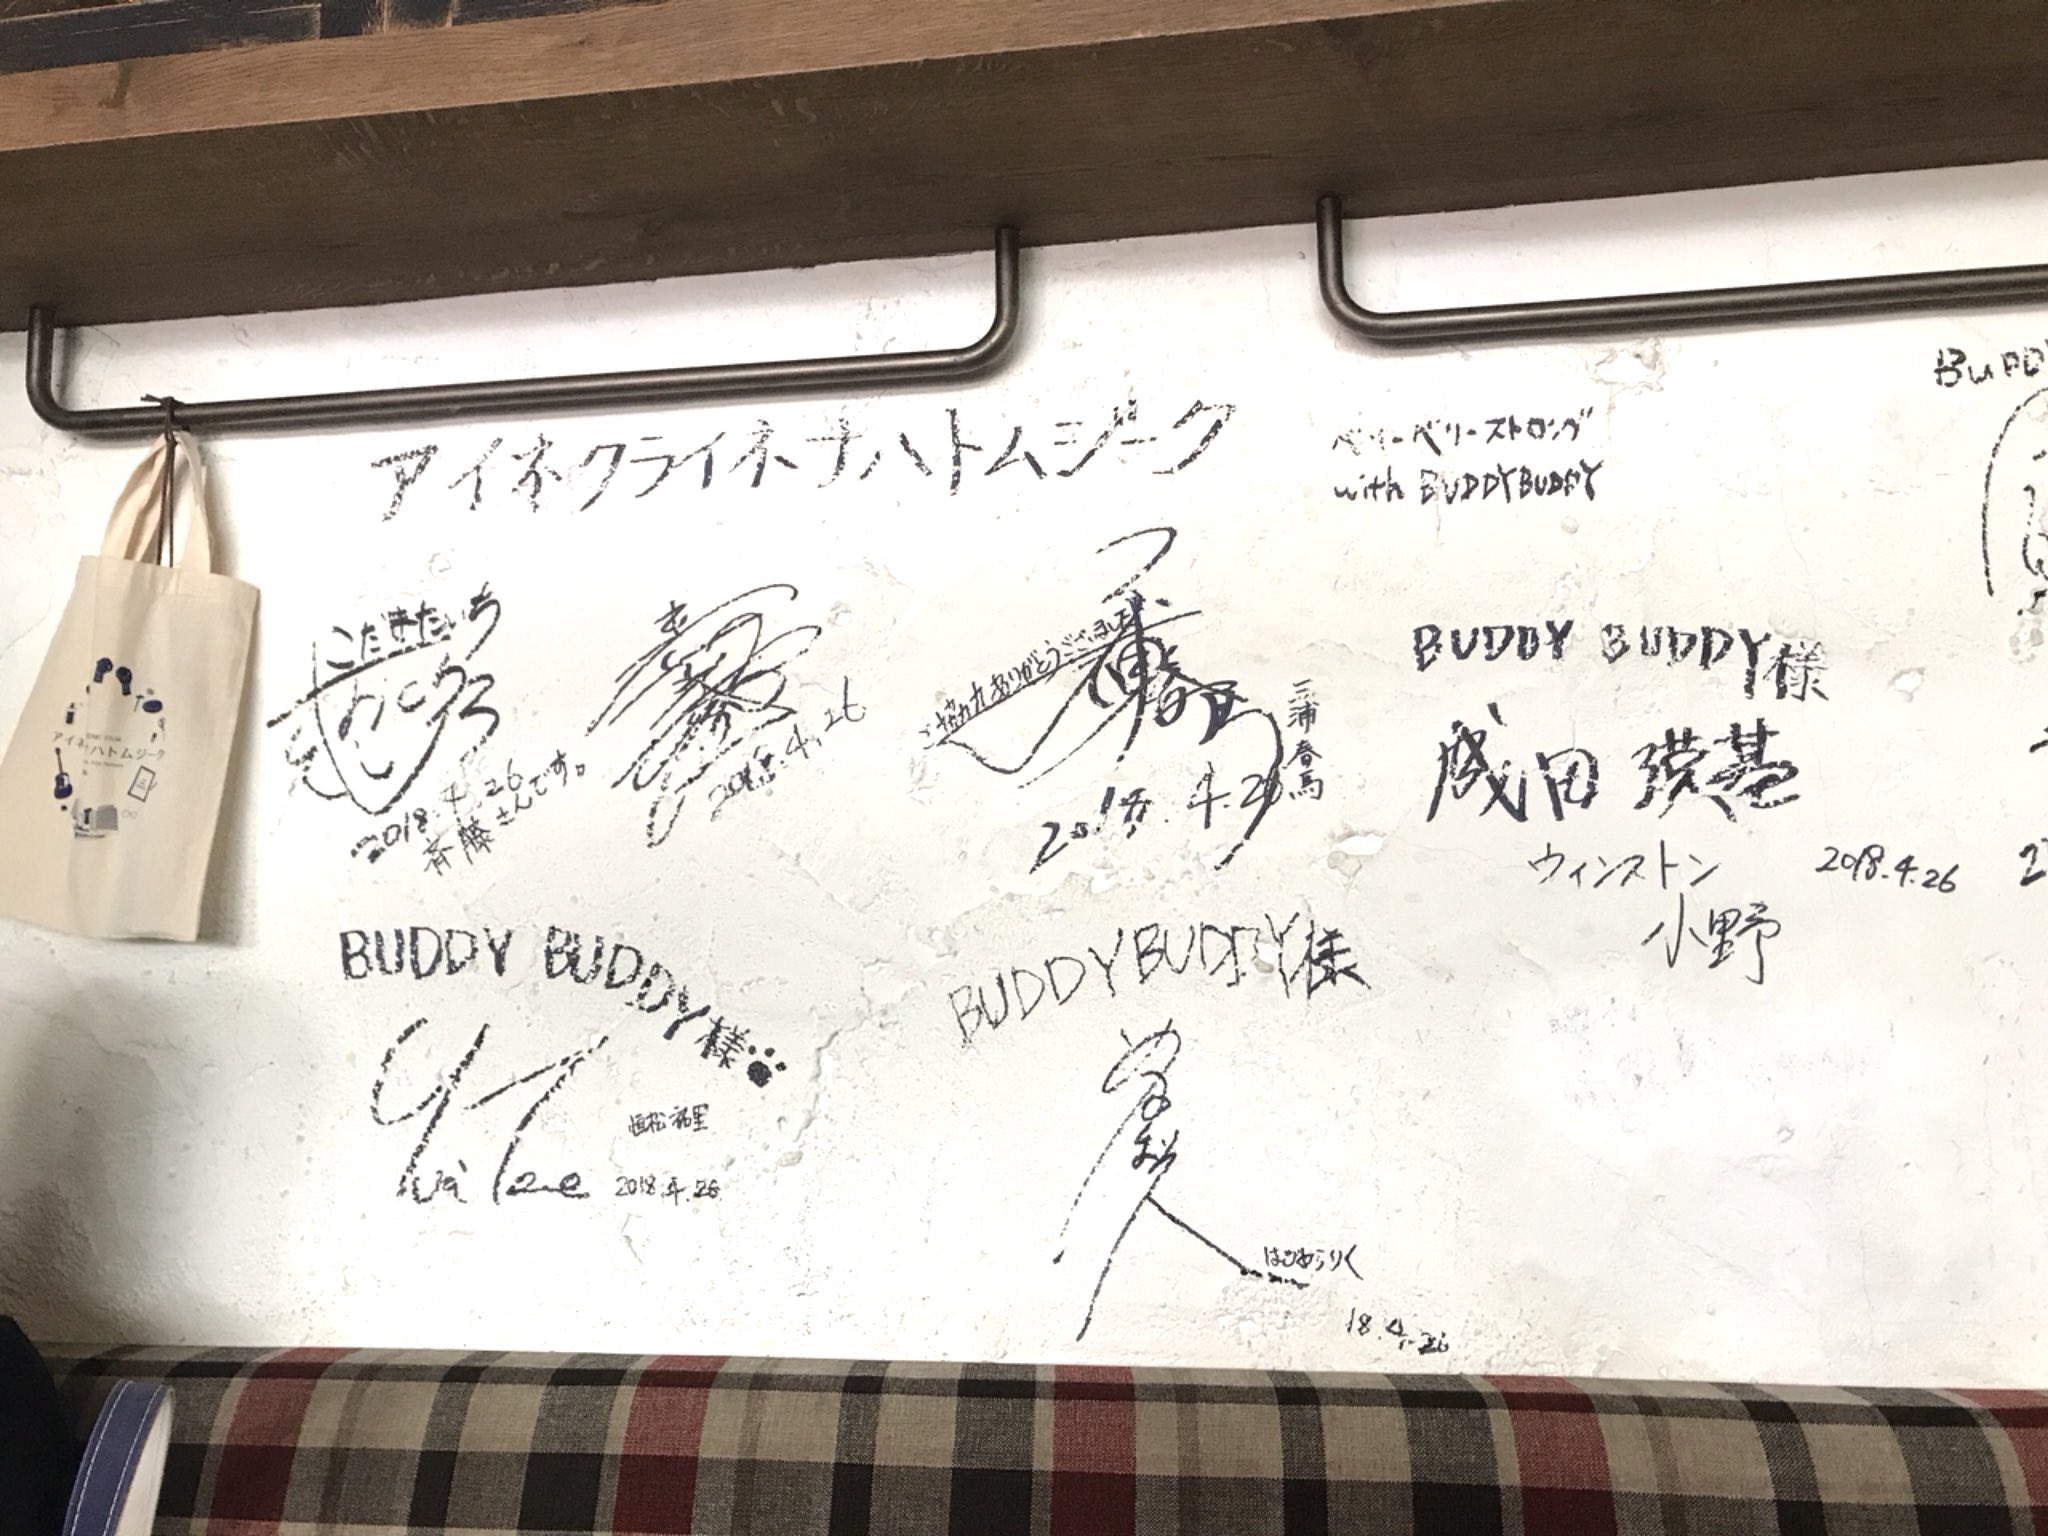 アイネクライネナハトムジーク
ベリーベリーストロング
with BUDDYBUDDY
BUDDY
こだまたいち
2018.4.26
斉藤さんです。
2018.4.26
ご協力ありがとうございました
三浦春馬
2018.4.26
BUDDY BUDDY様
成田瑛基
ウィンストン
小野
2018.4.26
アイネ・ハトムジーク
BUDDY BUDDY様
恒松祐里
Yuri Tsune
2018.4.26
BUDDYBUDDY様
はぎわらりく
18.4.26